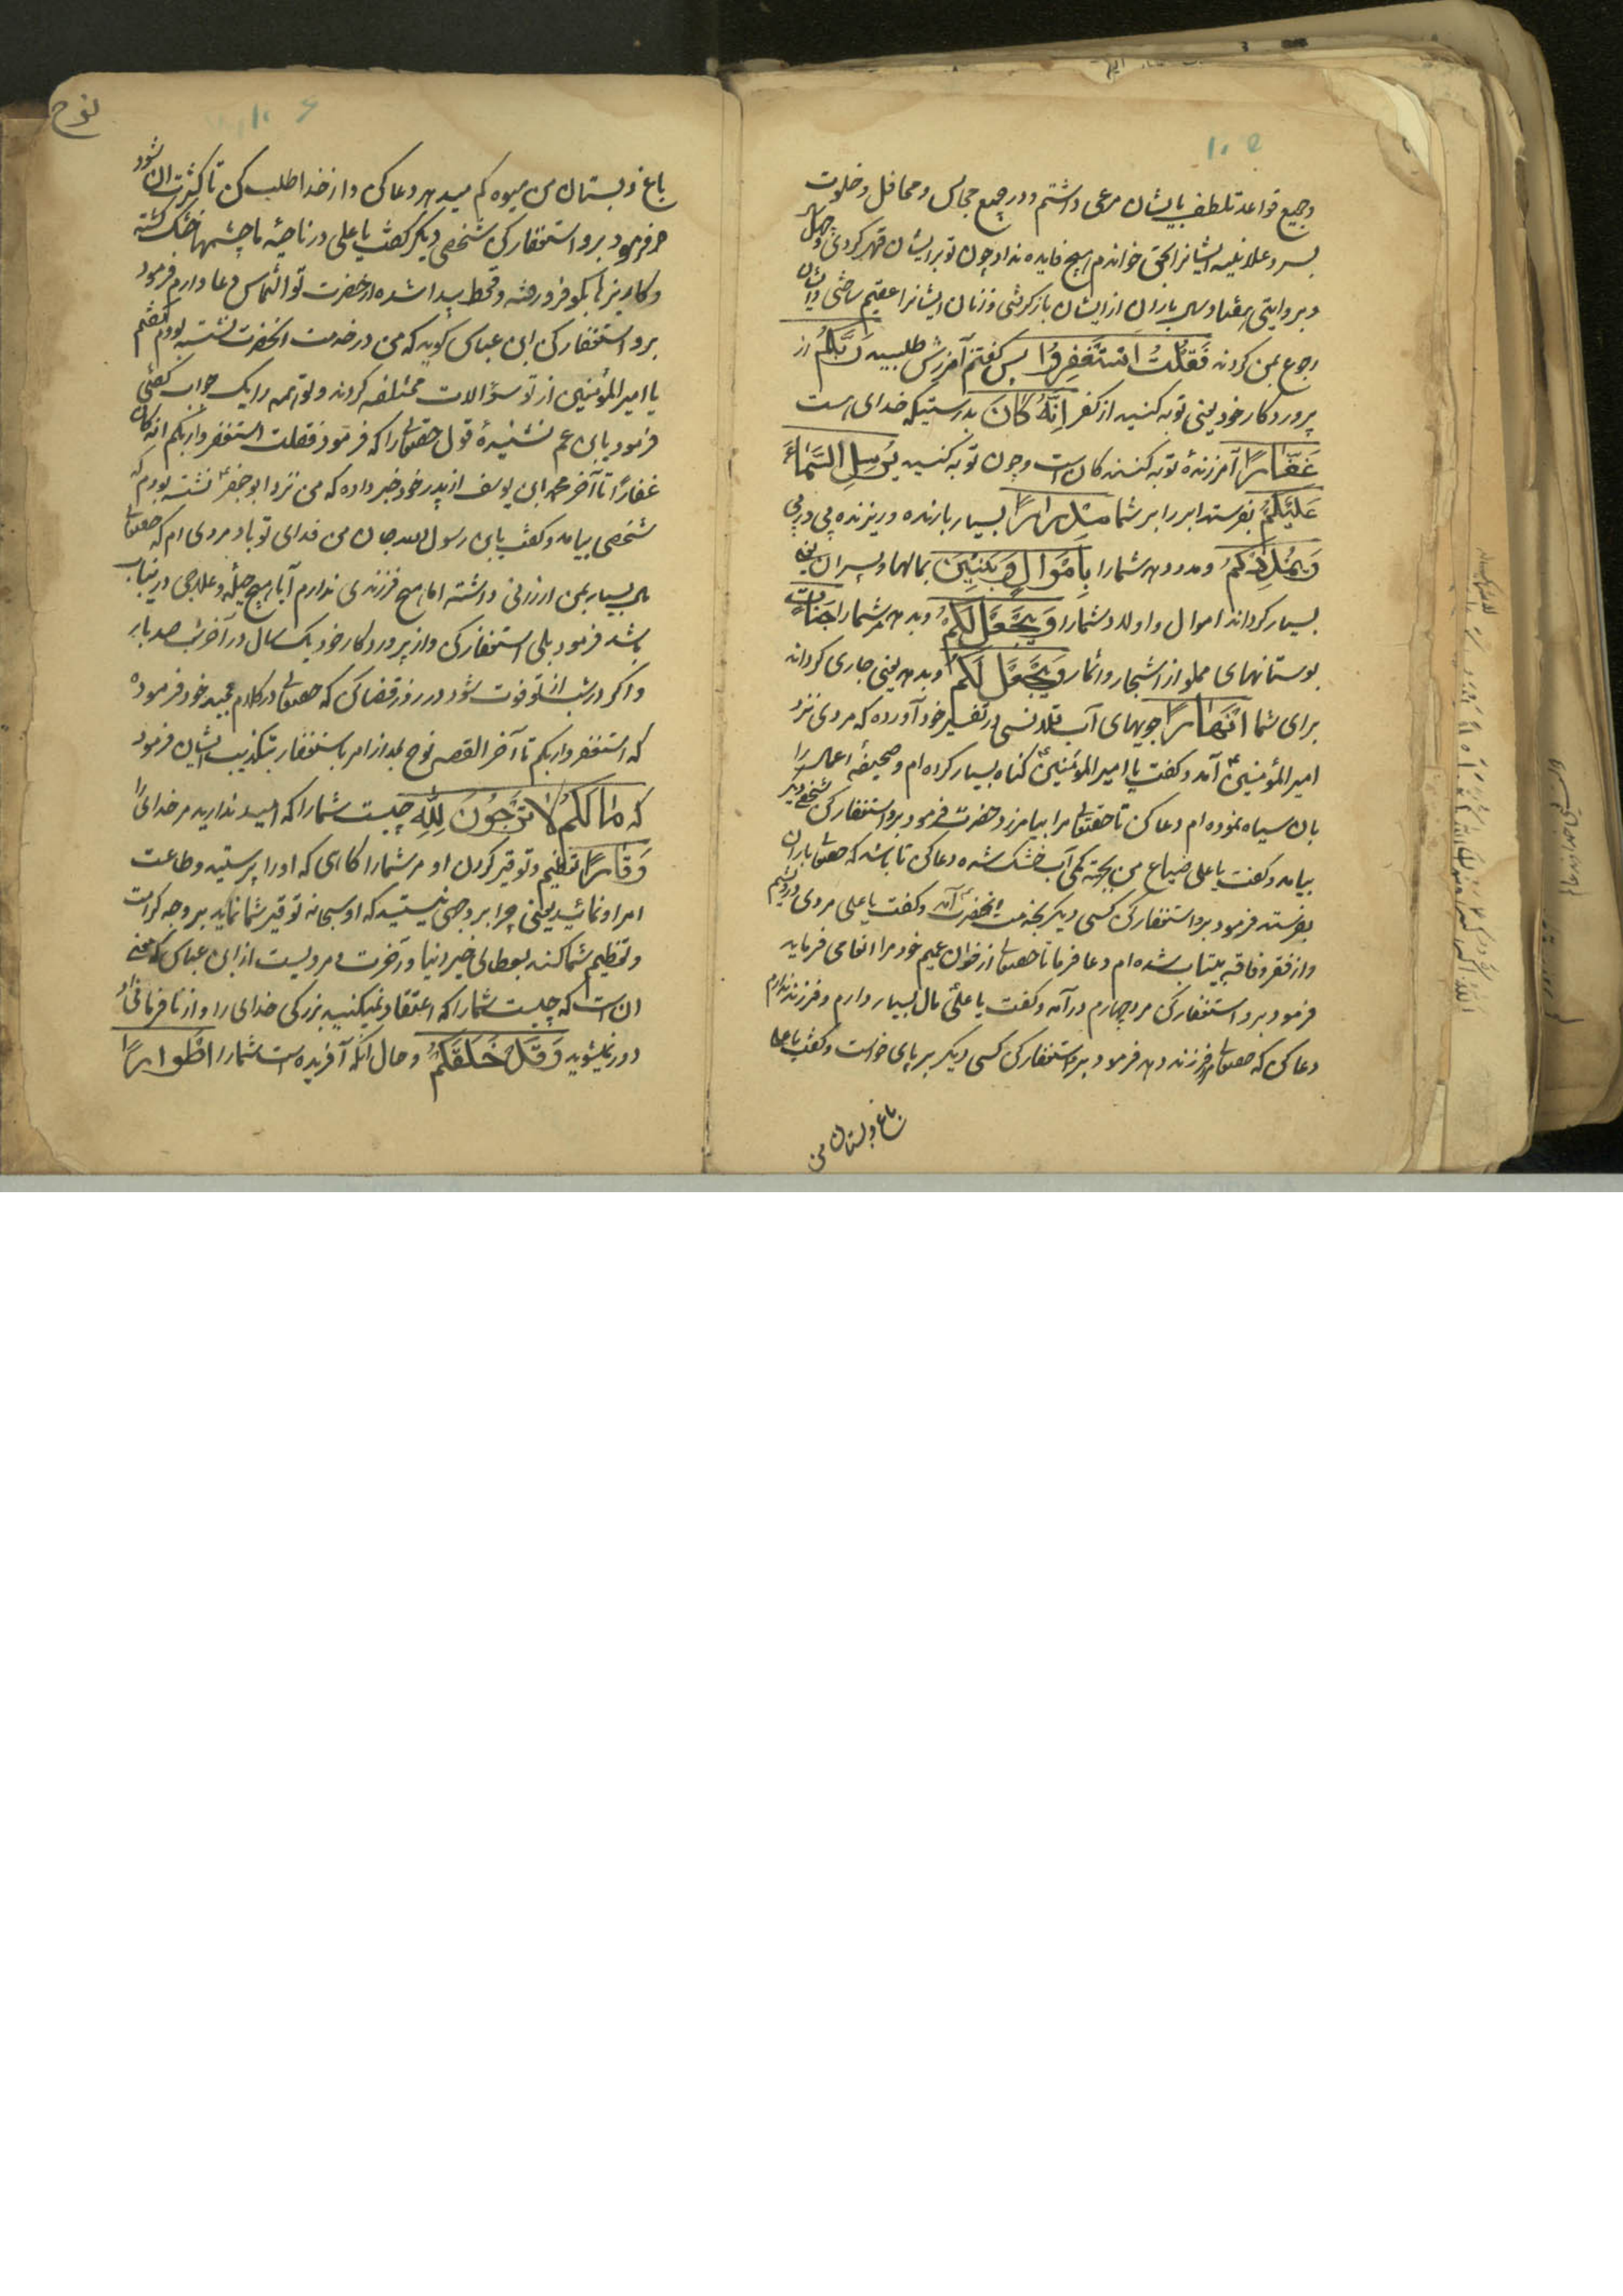 ۱۰۵
و جمیع قواعد تلطف بایشان مرعی داشتم و در جمیع مجالس و محافل و خلوت
بسر و علانیه ایشانرا بحق خواندم هیچ فایده نداد چون تو بر ایشان قهر کردی و چهل سال
و بروایتی هفتاد سال باران از ایشان بازگرفتی و زنان ایشانرا عقیم ساختی و ایشان
رجوع بمن کردند فَقُلْتُ اسْتَغْفِرُوا پس گفتم آمرزش طلبید رَبَّكُمْ از
پروردکار خود یعنی توبه کنید از کفر اِنَّهُ كَانَ بدرستیکه خدای هست
غَفَّارًا آمرزندهٔ توبه کنندکان است و چون توبه کنید يُرْسِلِ السَّمَاءَ
عَلَيْكُمْ بفرستد ابر را بر شما مِدْرَارًا بسیار بارنده و ریزنده پی در پی
وَيُمْدِدْكُمْ و مدد دهد شمارا بِاَمْوَالٍ وَبَنِينَ بمالها و پسران یعنی
بسیار کرداند اموال و اولاد شمارا وَيَجْعَلْ لَكُمْ و بدهد شمارا جَنَّاتٍ
بوستانهای مملو از اشجار و اثمار وَيَجْعَلْ لَكُمْ و بدهد یعنی جاری کرداند
برای شما اَنْهَارًا جویهای آب قلانسی در تفسیر خود آورده که مردی نزد
امیر المؤمنین آمد و کفت یا امیر المؤمنین کناه بسیار کرده ام و صحیفهٔ اعمال را
بان سیاه نموده ام دعا کن تا حقتعالی مرا بیامرزد حضرت فرمود برو استغفار کن شخصی دیکر
بیامد و کفت یا علی ضیاع من بجهة کمی آب خشک شده دعا کن تا باشد که حقتعالی باران
بفرستد فرمود برو استغفار کن کسی دیکر بخدمت انحضرت آمد و کفت یا علی مردی درویشم
و از فقر و فاقه بیتاب شده ام دعا فرما تا حقتعالی از خوان عمیم خود مرا انعامی فرماید
فرمود برو استغفار کن مرد چهارم درآمد و کفت یا علی مال بسیار دارم و فرزند ندارم
دعا کن که حقتعالی مرا فرزند دهد فرمود برو استغفار کن کسی دیکر بر پای خواست و کفت یا علی
باغ و بستان من
نوح
۱۰۶
باغ و بستان من میوه کم میدهد دعا کن و از خدا طلب کن تا کثرت ان شود
فرمود برو استغفار کن شخصی دیکر کفت یا علی در ناحیهٔ ما چشمها خشک کشته
و کاریزها فرو رفته و قحط پیدا شده از حضرت تو التماس دعا دارم فرمود
برو استغفار کن ابن عباس کوید که من در خدمت انحضرت نشسته بودم کفتم
یا امیر المؤمنین از تو سؤالات مختلفه کردند و تو همه را یک جواب کفتی
فرمود یابن عم نشنیدهٔ قول حقتعالی را که فرمود فقلت استغفروا ربکم انه کان
غفارًا تا آخر محمد ابن یوسف از پدر خود خبر داده که من نزد ابو جعفر نشسته بودم که
شخصی بیامد و کفت یابن رسول الله جان من فدای تو باد مردی ام که حقتعالی
مال بسیار بمن ارزانی داشته اما هیچ فرزندی ندارم آیا هیچ حیله و علاجی درینباب
باشد فرمود بلی استغفار کن و از پروردکار خود یک سال در آخر شب صد بار
و اکر در شب از تو فوت شود در روز قضا کن که حقتعالی در کلام مجید خود فرموده
که استغفروا ربکم تا آخر القصه نوح بعد از امر باستغفار بتکذیب ایشان فرمود
که مَا لَكُمْ لَا تَرْجُونَ لِلّٰهِ چیست شمارا که امید ندارید مر خدای را
وَقَارًا تعظیم و توقیر کردن او مر شمارا کاری که او را پرستید و طاعت
امر او نمائید یعنی چرا بر وجهی نیستید که او سبحانه توقیر شما نماید بر وجه کرامت
و تعظیم شما کند بعطای خیر دنیا و آخرت و مرویست از ابن عباس که معنی
ان است که چیست شمارا که اعتقاد نمیکنید بزرکی خدای را و از نافرمانی او
دور نمیشوید وَقَدْ خَلَقَكُمْ و حال آنکه آفریده است شمارا اَطْوَارًا